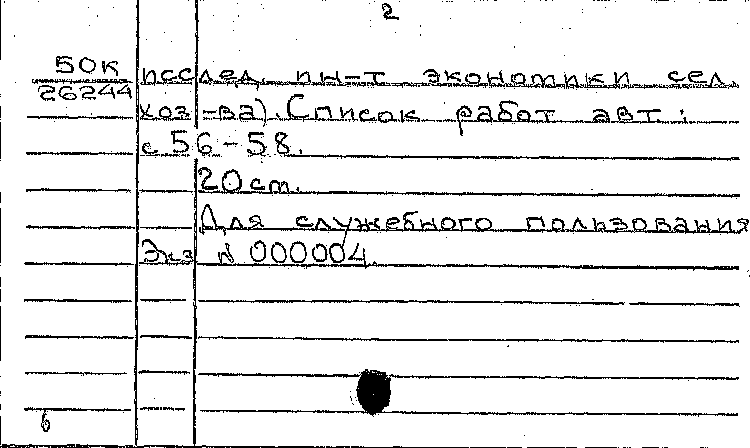 2
50К
26244
исслед. ин-т экономики сел.
хоз-ва). Список работ авт:
с 56-58.
20 cm.
Для служебного пользования
Экз № 000004.
6